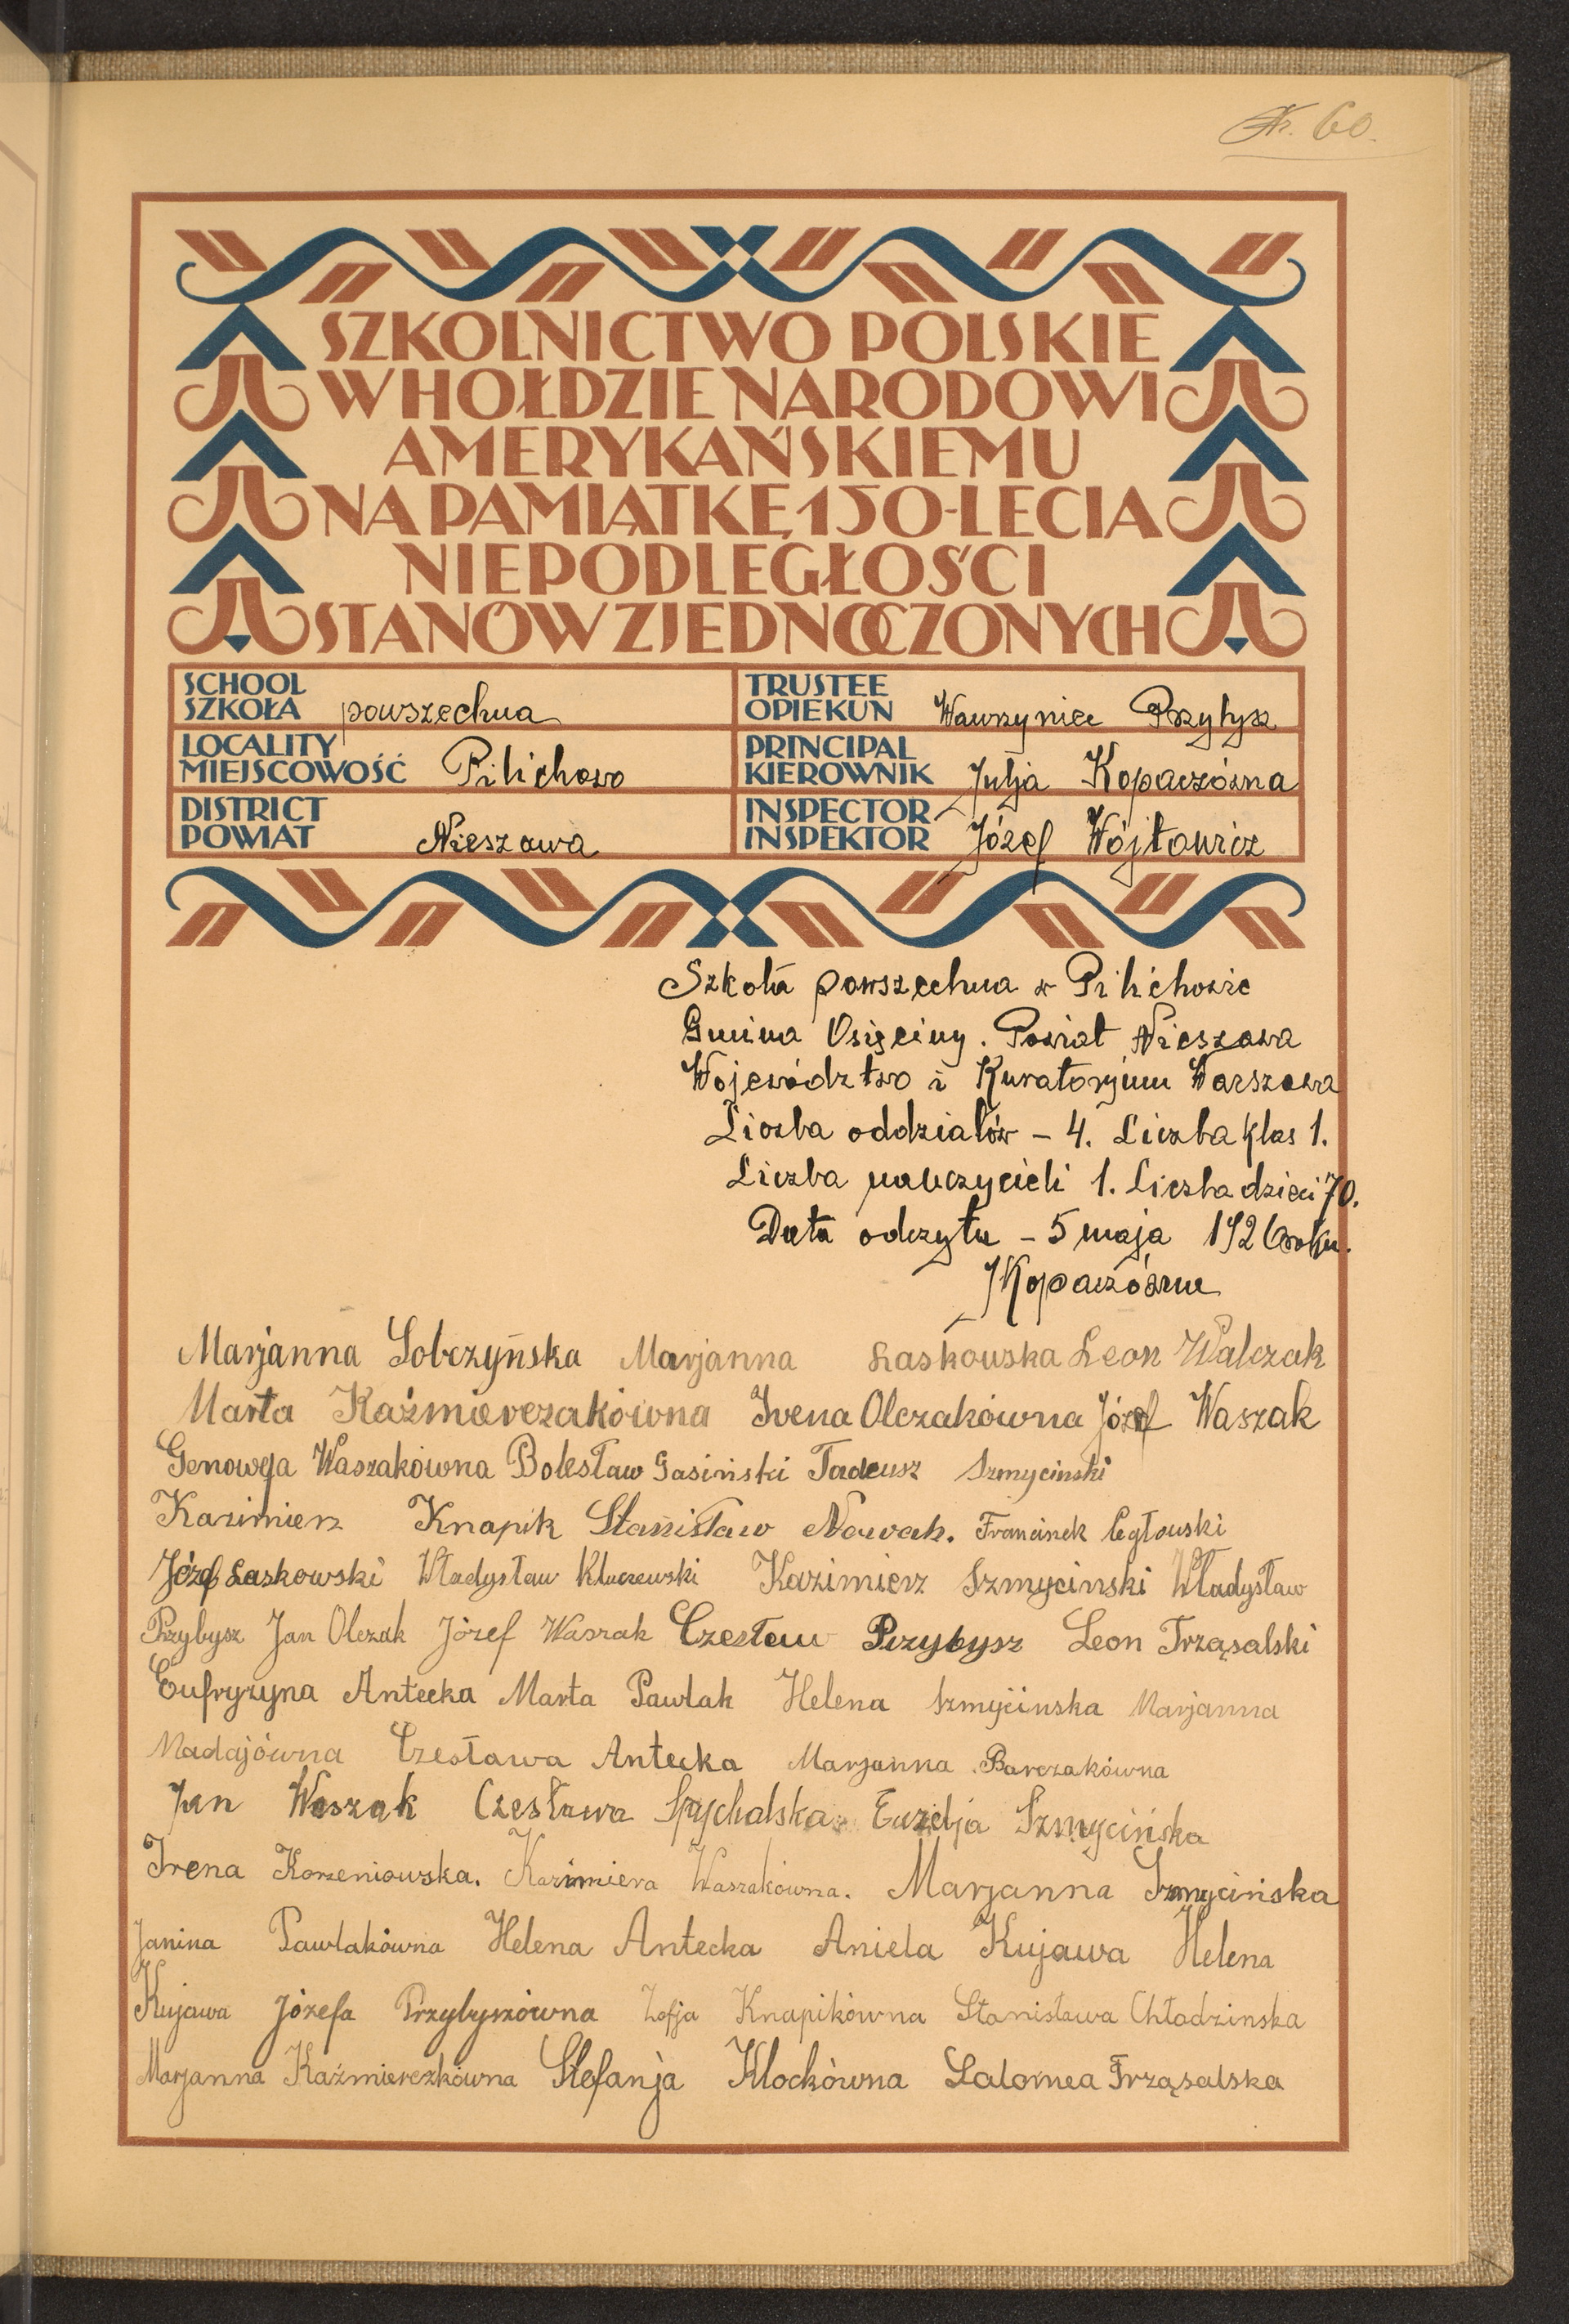 Nr. 60.
SZKOLNICTWO POLSKIE
W HOŁDZIE NARODOWI
AMERYKAŃSKIEMU
NA PAMIĄTKĘ 150-LECIA
NIEPODLEGŁOŚCI
STANÓW ZJEDNOCZONYCH
SCHOOL
SZKOŁA powszechna
TRUSTEE
OPIEKUN Wawrzyniec Przybysz
LOCALITY
MIEJSCOWOŚĆ Pilichowo
PRINCIPAL
KIEROWNIK Julja Kopaczówna
DISTRICT
POWIAT Nieszawa
INSPECTOR
INSPEKTOR Józef Wójtowicz
Szkoła powszechna w Pilichowie
Gmina Osięciny. Powiat Nieszawa
Województwo i Kuratorjum Warszawa
Liczba oddziałów – 4. Liczba klas 1.
Liczba nauczycieli 1. Liczba dzieci 70.
Data odczytu – 5 maja 1926 roku.
JKopaczówna
Marjanna Sobczyńska Marjanna Laskowska Leon Walczak
Marta Kaźmierczakówna Irena Olczakówna Józef Waszak
Genowefa Waszakówna Bolesław Gasiński Tadeusz Szmycinski
Kazimierz Knapik Stanisław Nowak. Franciszek Cegłowski
Józef Laskowski Władysław Kluczewski Kazimierz Szmycinski Władysław
Przybysz Jan Olczak Józef Waszak Czesław Przybysz Leon Trząsalski
Eufryzyna Antecka Marta Pawlak Helena Szmycinska Marjanna
Nadajówna Czesława Antecka Marjanna Barczakówna
Jan Waszak Czesława Spychalska Euzelja Szmycińska
Irena Korzeniowska. Kazimiera Waszakówna. Marjanna Szmycińska
Janina Pawlakówna Helena Antecka Aniela Kujawa Helena
Kujawa Józefa Przybyszówna Zofja Knapikówna Stanisława Chłodzinska
Marjanna Kaźmierczkówna Stefanja Klockówna Salomea Trząsalska